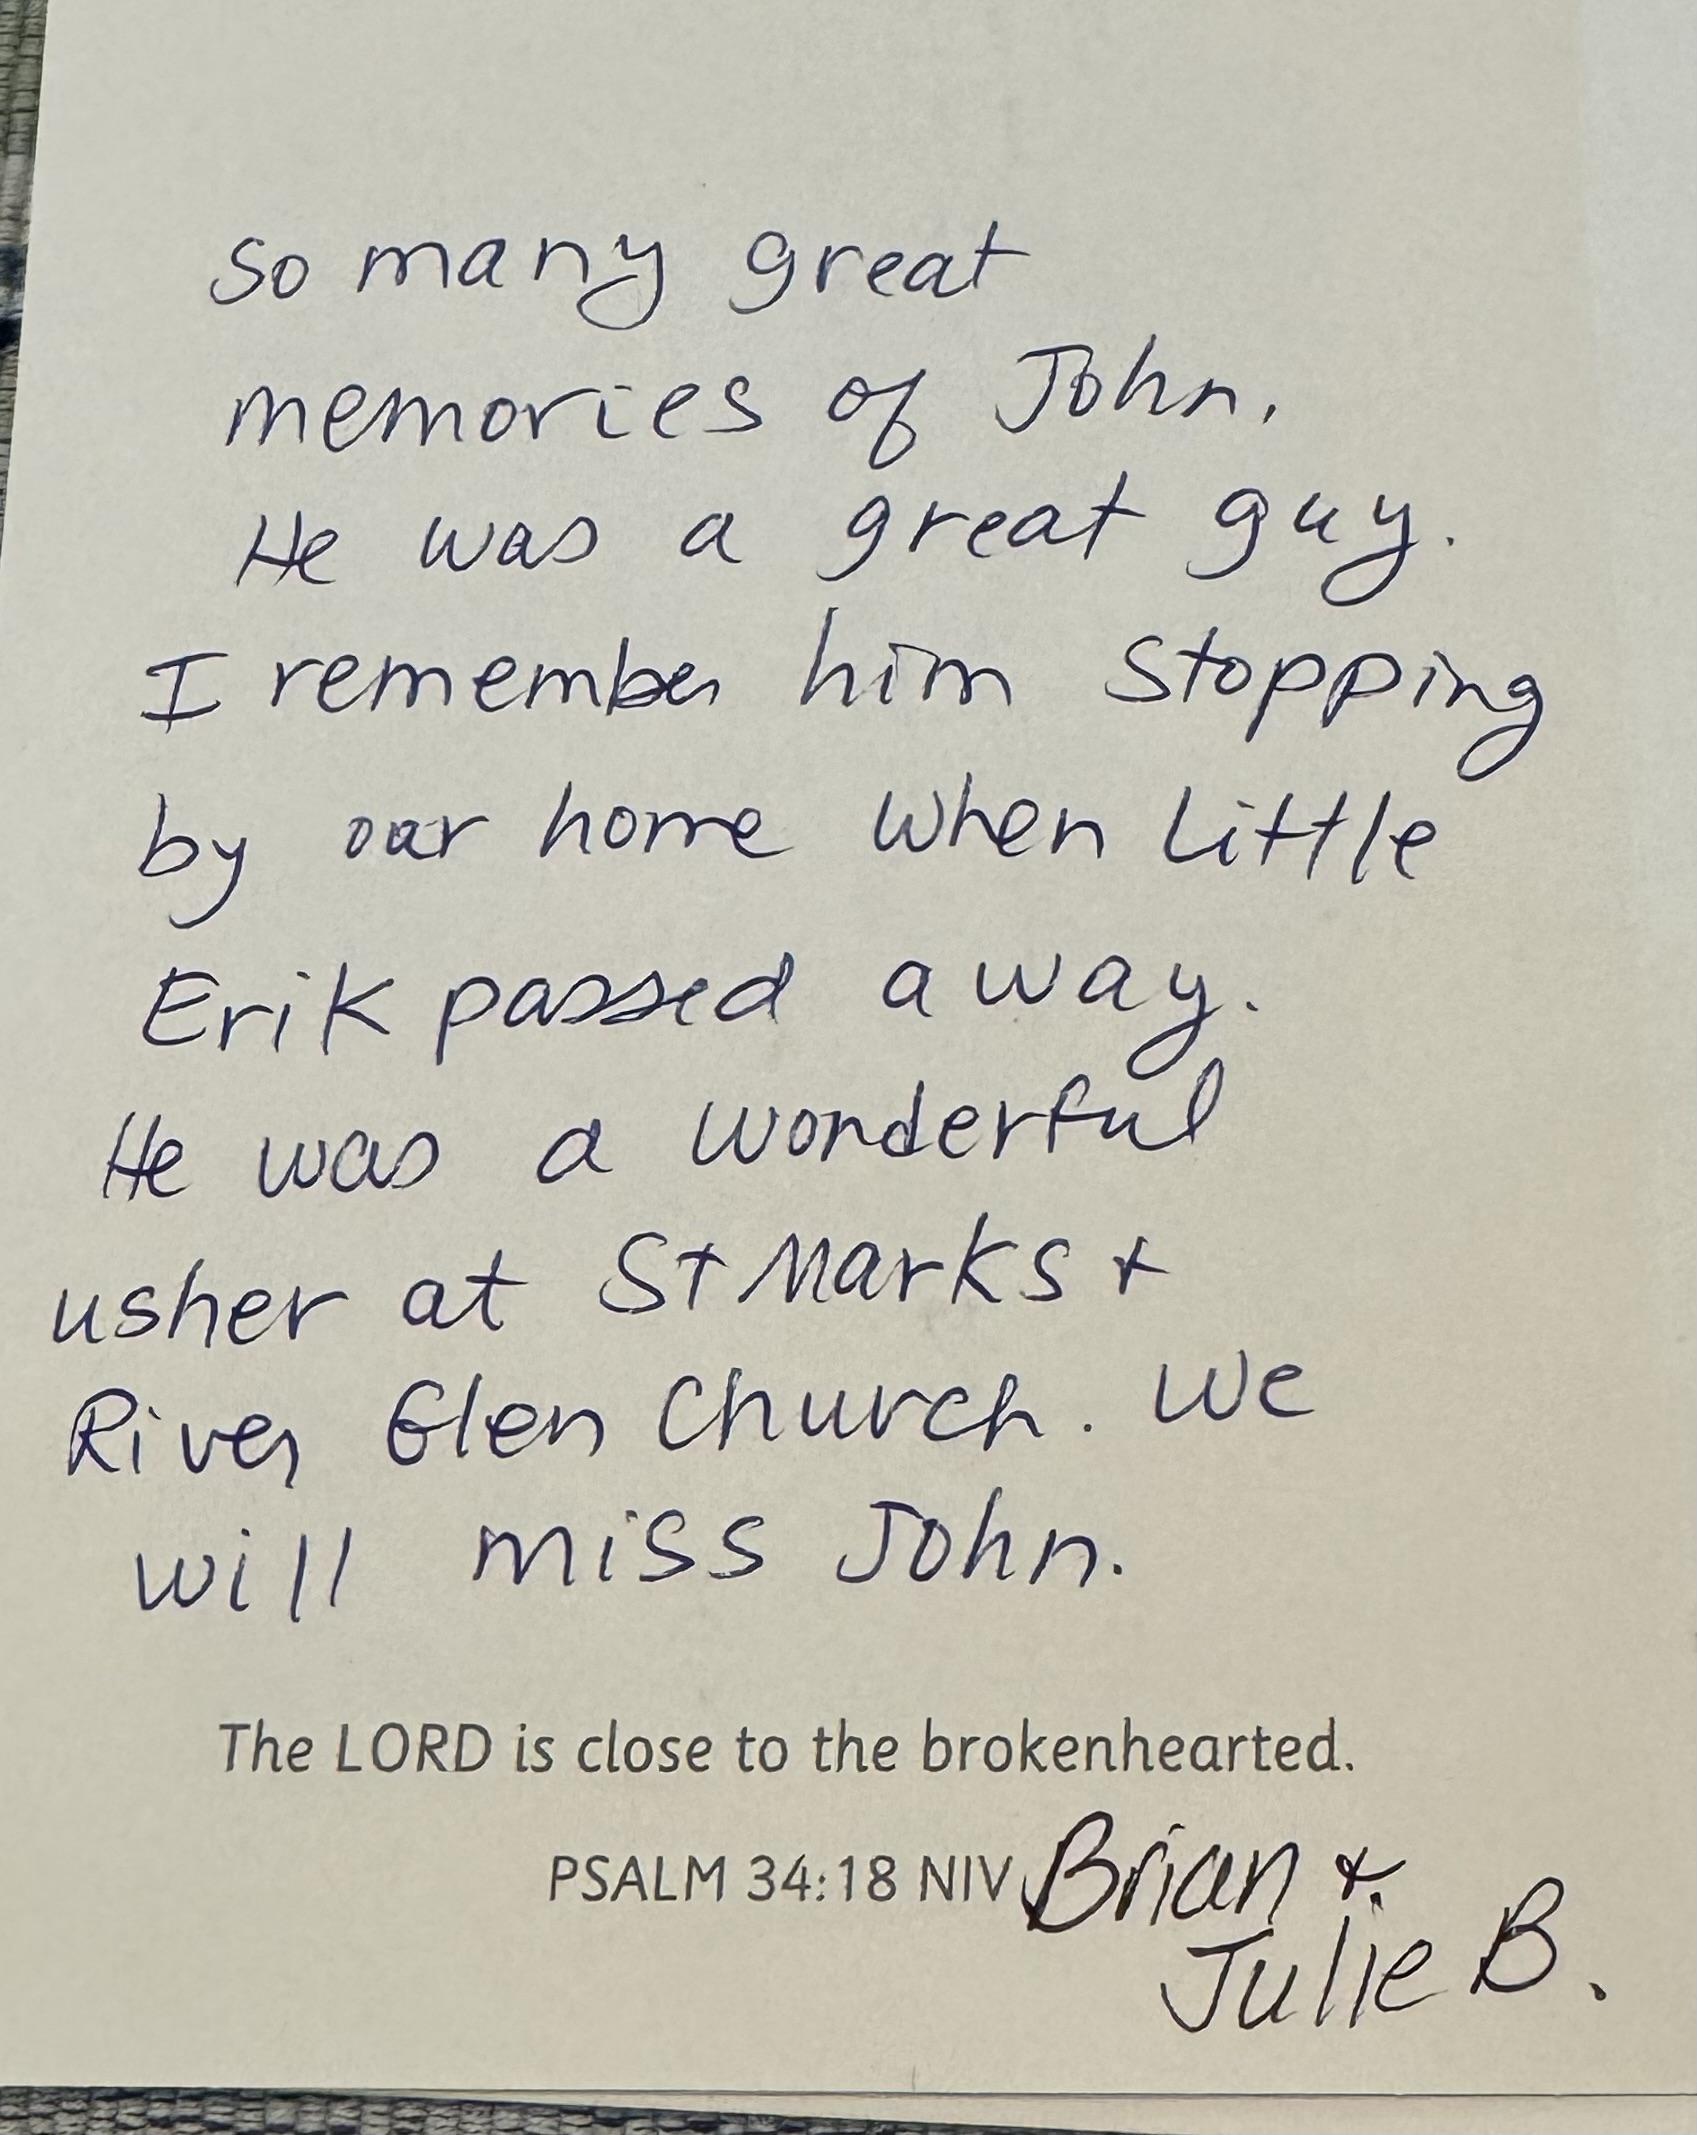 So many great
memories of John.
He was a great guy.
I remember him stopping
by our home when little
Erik passed away.
He was a wonderful
usher at St Marks +
River Glen Church. We
will miss John.
The LORD is close to the brokenhearted.
PSALM 34:18 NIV Brian &
Julie B.